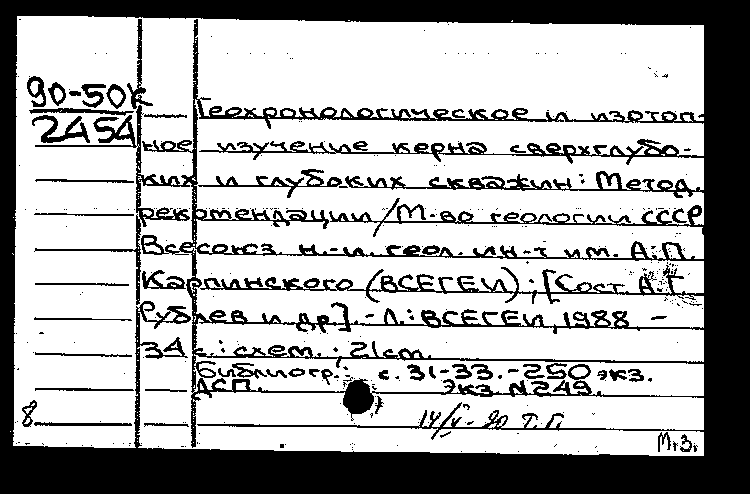 90-50К
2454
Геохронологическое и изотоп-
ное изучение керна сверхглубо-
ких и глубоких скважин: Метод.
рекомендации/М-во геологии СССР,
Всесоюз. н.-и. геол. ин-т им. А.П.
Карпинского (ВСЕГЕИ); [Сост. А.Г.
Рублев и др]. - Л.: ВСЕГЕИ, 1988. -
34 с.: схем.; 21 см.
Библиогр.: с. 31-33. - 250 экз.
ДСП. Экз. N 249.
8 14/V - 90 Т.П.
М.З.